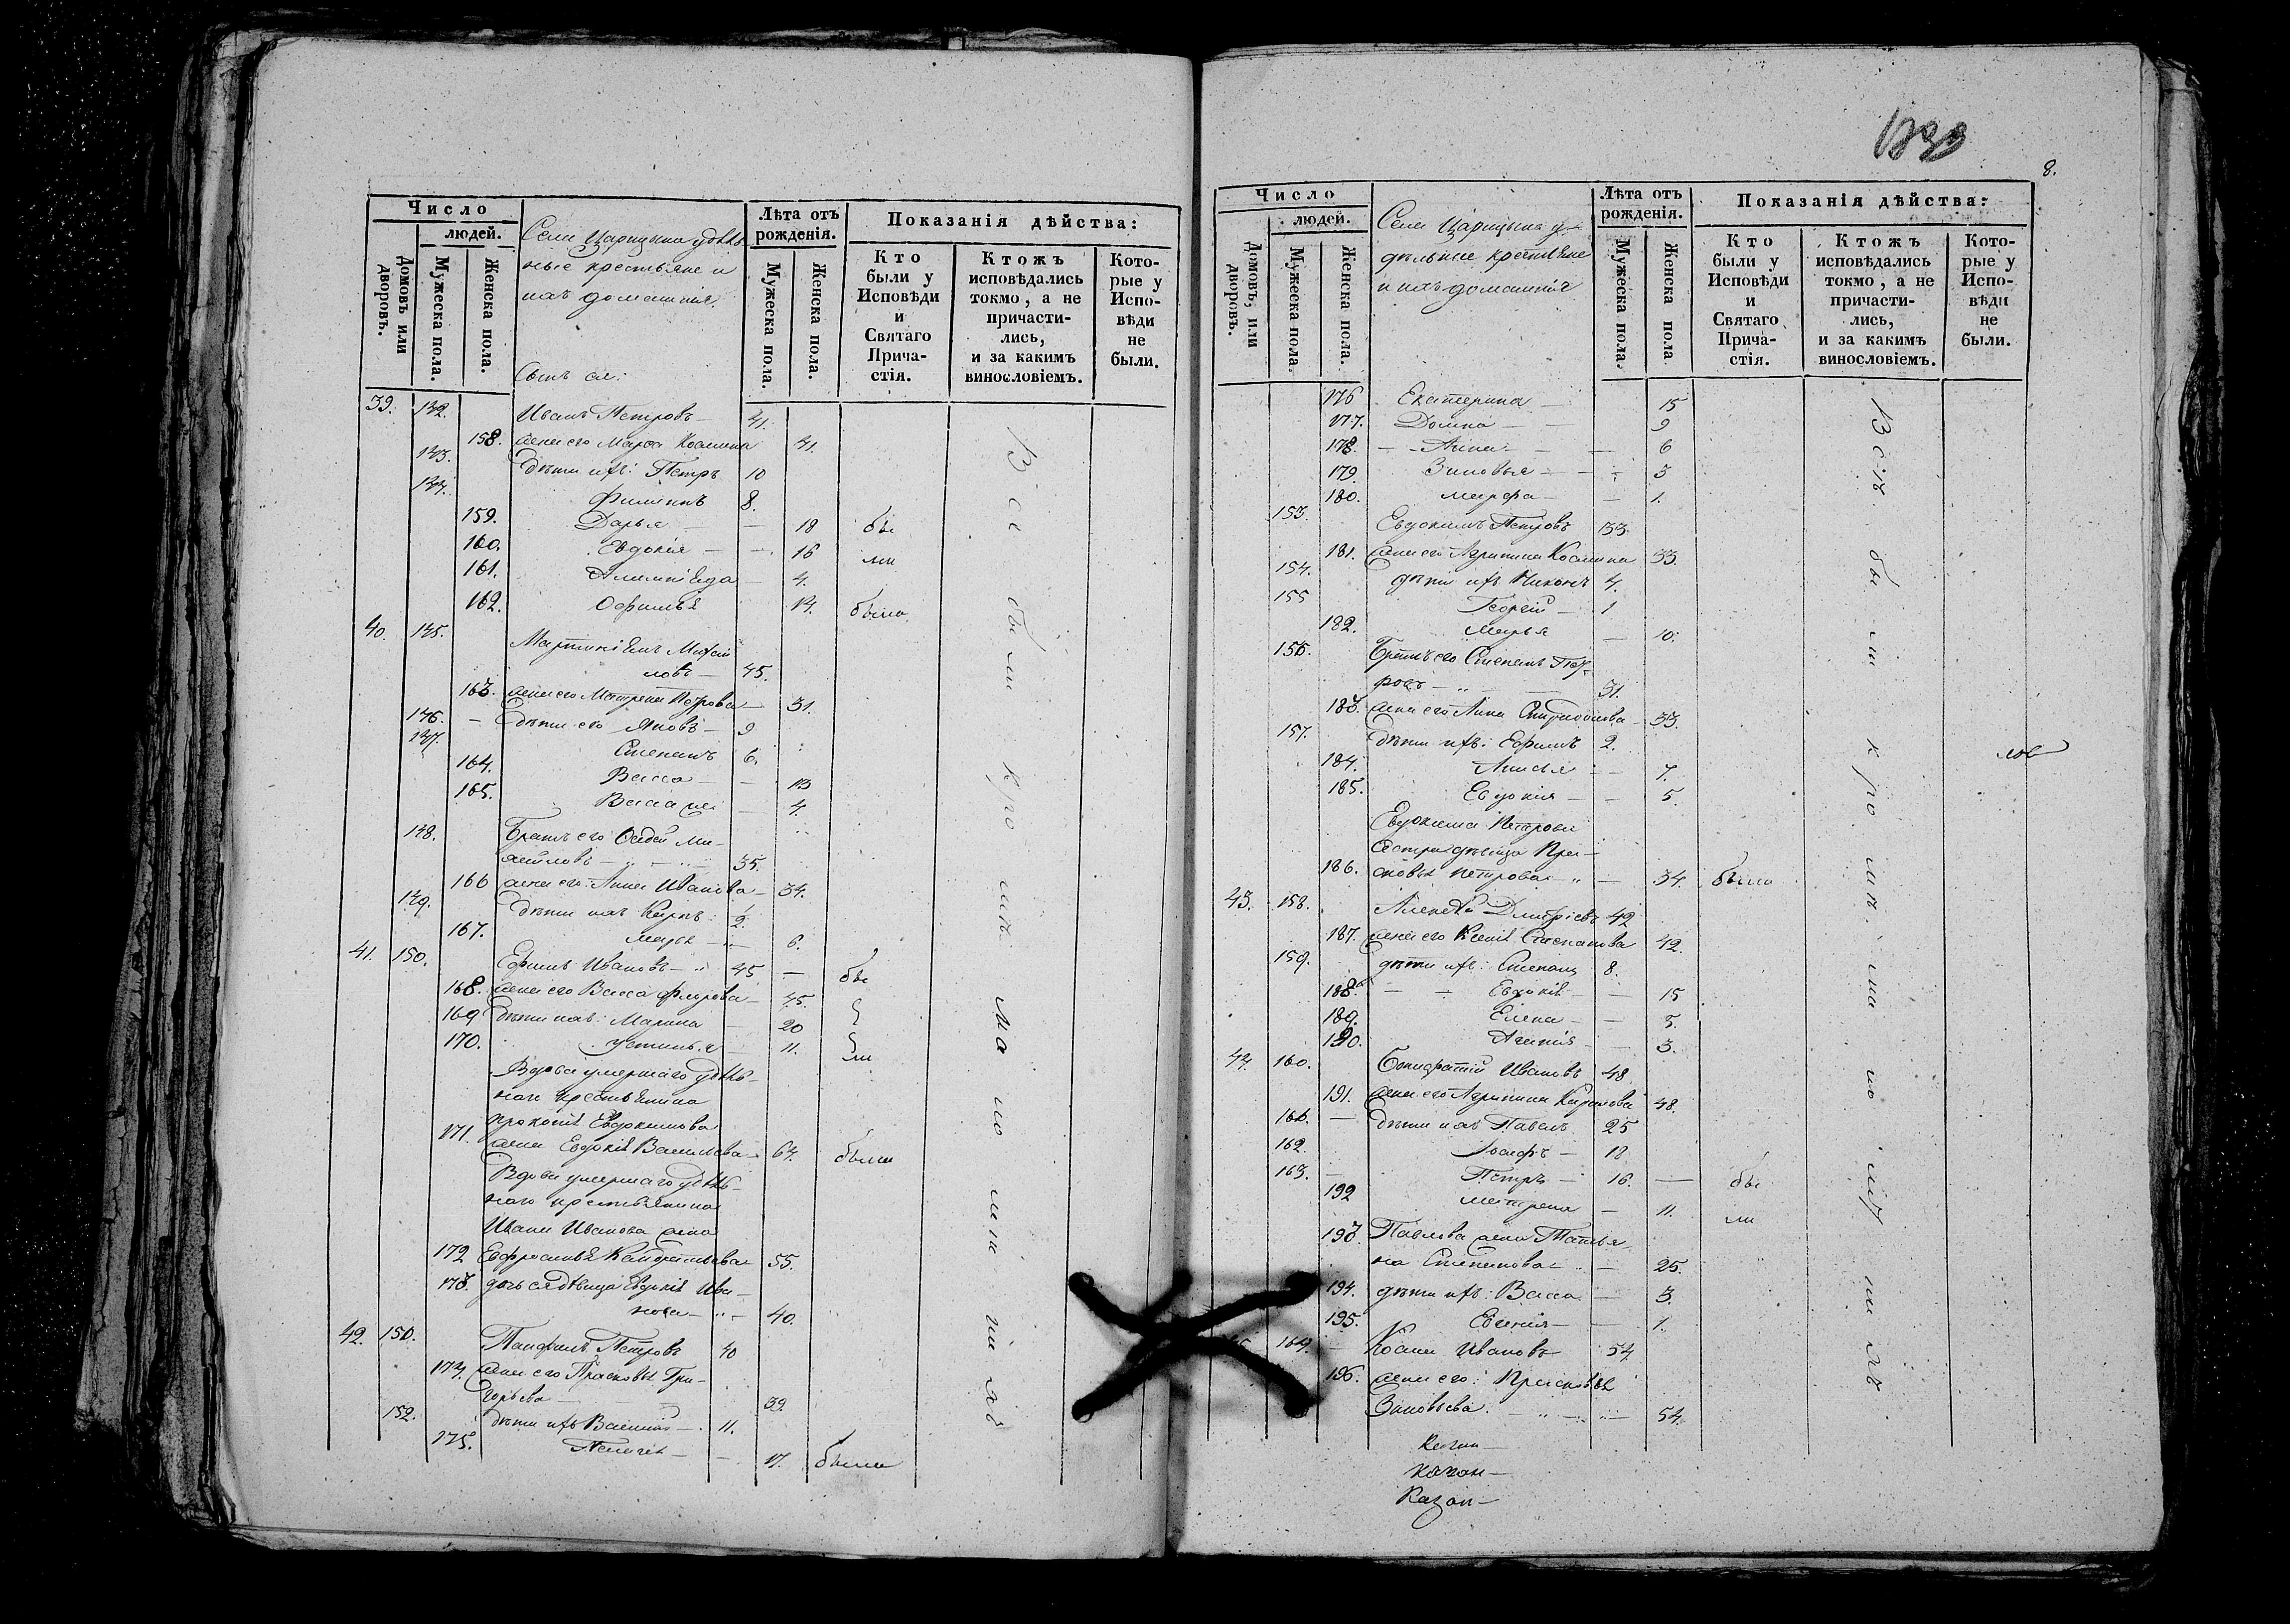 Число
людей.
Домовъ или дворовъ.
Мужеска пола.
Женска пола.
Села Царицына удѣль
ные крестьяне и
ихъ домашнія
Лѣта отъ рожденія.
Мужеска пола.
Женска пола.
Показанія дѣйства:
Кто были у Исповѣди и Святаго Причастія.
Ктожъ исповѣдались токмо, а не причастились, и за какимъ винословіемъ.
Которые у Исповѣди не были.
39. 142. Иванъ Петровъ 41.
158. жена его Марѳа Космина 41.
143. дѣти ихъ: Петръ 10
144. Филиппъ 8.
159. Дарья — 18 бы
160. Евдокія — 16 ли
161. 4.
162. 14. была
40. 145. Мартиніанъ Михай
ловъ — 45.
163. жена его Матрена Петрова — 31.
146. — дѣти его Яковъ — 9
147. Степанъ 6.
164. Васса — 13
165. Васса же — 4.
148. Братъ его Ми-
хайловъ — 35.
166 жена его Анна Иванова — 34.
149. дѣти ихъ Карпъ: 2.
167. Марья — 6.
41. 150. Ефимъ Ивановъ — 45 — бы
168. жена его Васса Фирсова — 45.
169 дѣти ихъ: Марина — 20
170. Устинья 11. ли
Вдова умершаго удѣль-
наго крестьянина
Прокопія Евдокимова
171. жена Евдокія Васильева — 64. была
Вдова умершаго удѣль-
наго крестьянина
Ивана Иванова жена
172 Евфросинья Кондратьева 55.
173. дочь ея дѣвица Евдокія Ива-
нова — 40.
42. 150. Панфилъ Петровъ 40
174. жена его Прасковья Гри-
горьева 39.
152. дѣти ихъ Василій — 11.
175. Пелагея — 17. была
Всѣ были кромѣ малолѣтнихъ
1833
8.
Число
людей.
Домовъ, или дворовъ.
Мужеска пола.
Женска пола.
Села Царицына у-
дѣльные крестьяне
и ихъ домашнія
Лѣта отъ рожденія.
Мужеска пола.
Женска пола
Показанія дѣйства:
Кто были у Исповѣди и Святаго Причастія.
Ктожъ исповѣдались токмо, а не причастились, и за какимъ винословіемъ.
Которые у Исповѣди не были.
176 Екатерина — 15
177. Домна — 9
178. Анна — 6
179 Зиновья — 3
180. Марфа — 1.
153. Евдокимъ Петровъ 33.
181. жена его Агрипина Космина 33.
154. дѣти ихъ Никонъ 4.
155 Георгій — 1
182. Марья — 10.
156. Братъ его Степанъ Пет-
ровъ — 31.
183. жена его Анна Спиридонова — 33.
157. дѣти ихъ: Ефимъ 2.
184. Анисья — 7.
185. Евдокія — 5.
Евдокима Петрова
сестра дѣвица Прас-
186. ковья Петрова — 34. была
43. 158. Алексѣй Дмитріевъ 42
187. жена его Ксенія Степанова 42.
159. дѣти ихъ: Степанъ 8.
188. Евдокія — 15
189. Елена — 5.
190. 3.
44. 160. Ивановъ 48
191. жена его Агрипина Карпова 48.
166. — дѣти ихъ Павелъ 25
162. Іосифъ — 18
163. Петръ — 16. — бы
192 Матрена — 11. ли
193. Павлова жена Татья-
на Степанова — 25.
194. дѣти ихъ: Васса — 3.
195. Евгенія — 1.
164. Ивановъ 54
196. жена его: Прасковья
Зиновьева. — 54.
Всѣ были кромѣ малолѣтнихъ
Казан—